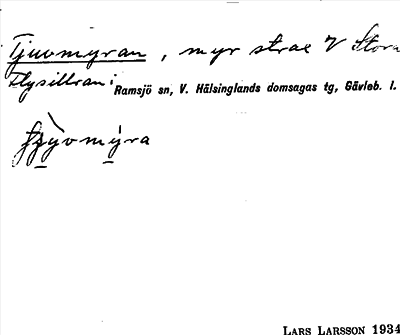 Tjuvmyran, myr strax V Stora
Flysillran i Ramsjö sn, V. Hälsinglands domsagas tg, Gävleb. l.
LARS LARSSON 1934